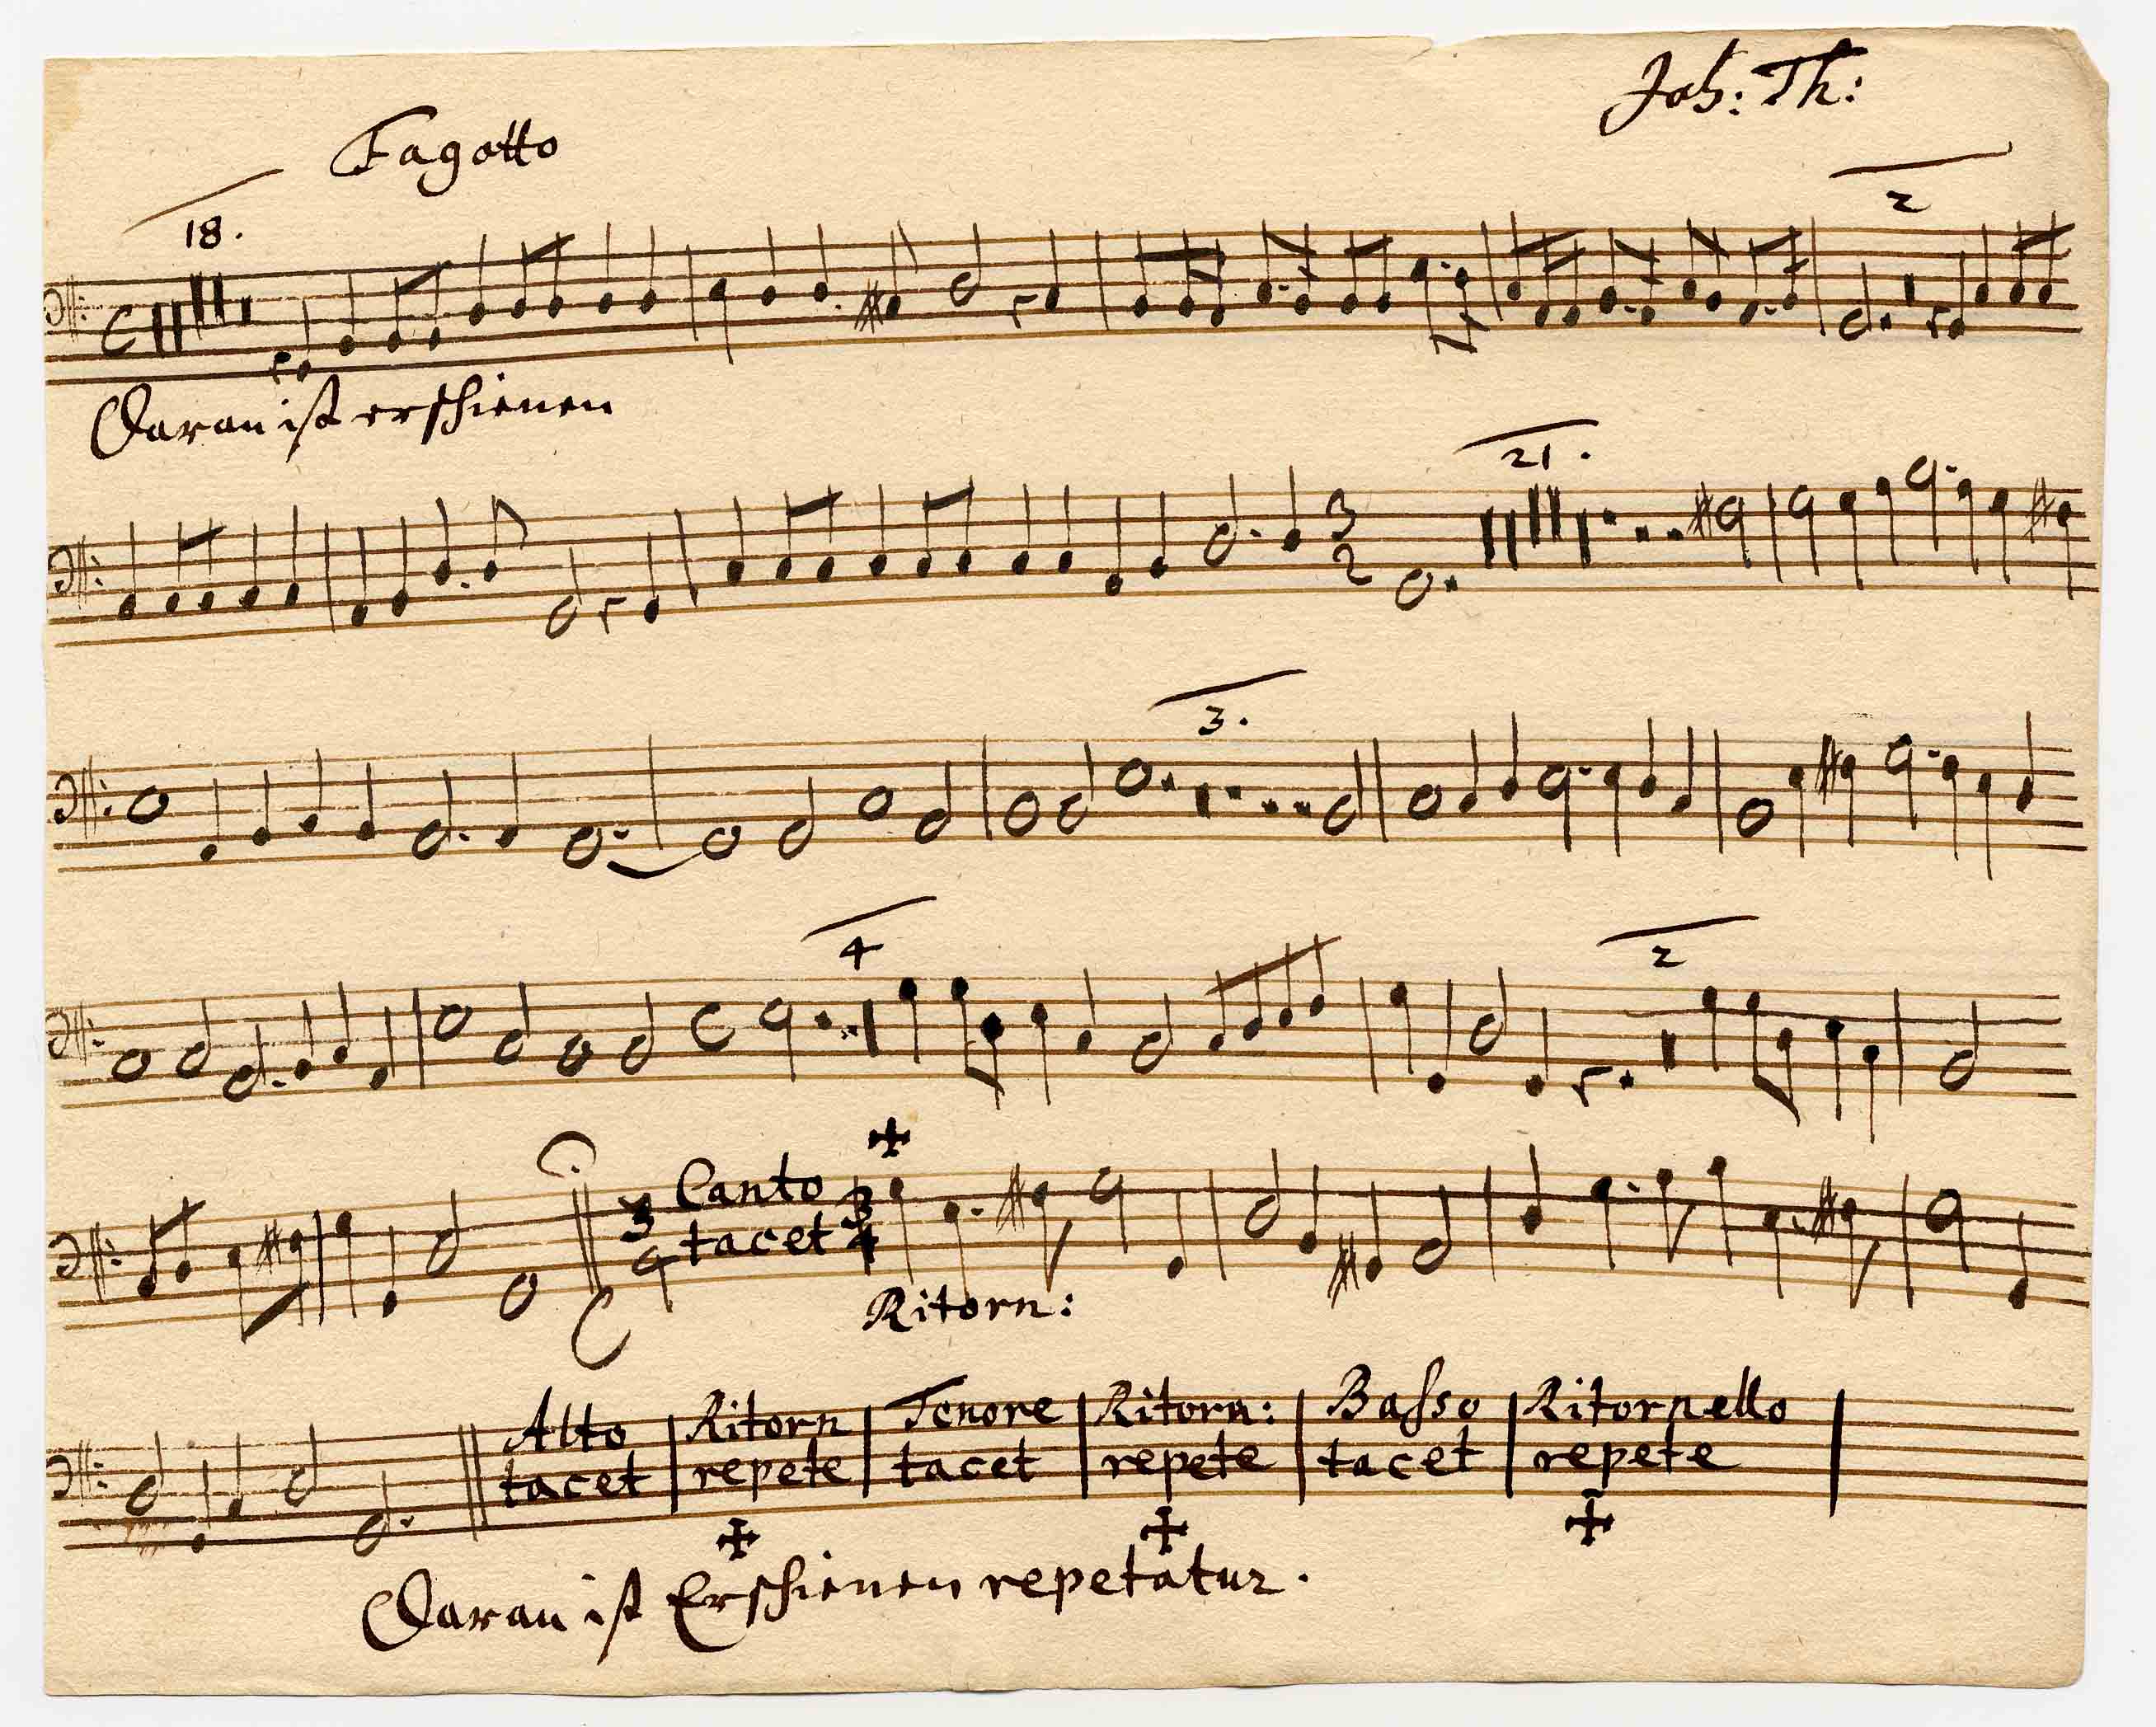 Joh: Th:
Fagotto
18.
2
Daran ist erschienen
21.
3
2
3.
4
2
Canto
tacet
3
4
3
4
Ritorn:
Alto Ritorn Tenore Ritorn: Basso Ritornello
tacet repete tacet repete tacet repete
Daran ist Erschienen repetatur.